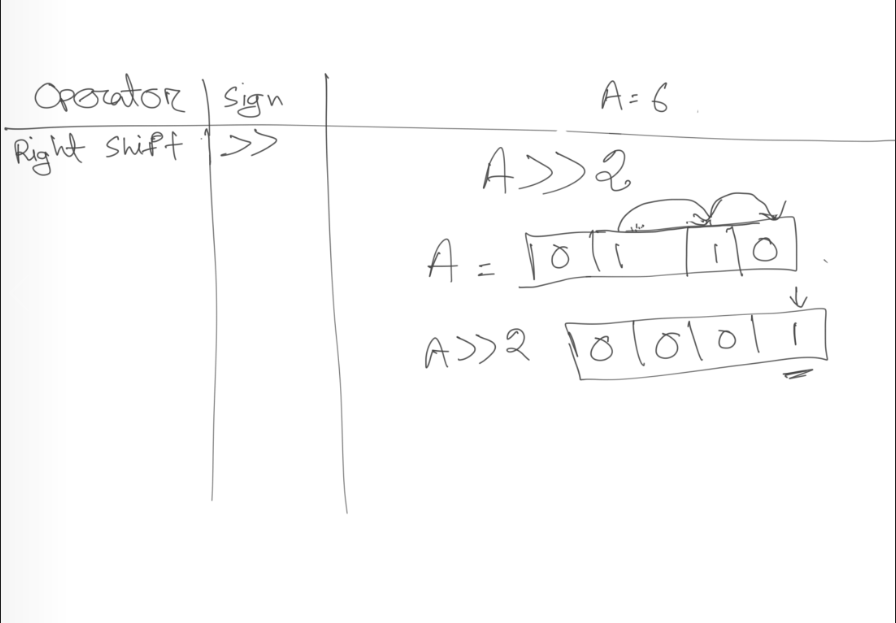 Operator | Sign
A = 6
Right Shift >>
A >> 2
A = 0 1 1 0
A >> 2 0 0 0 1